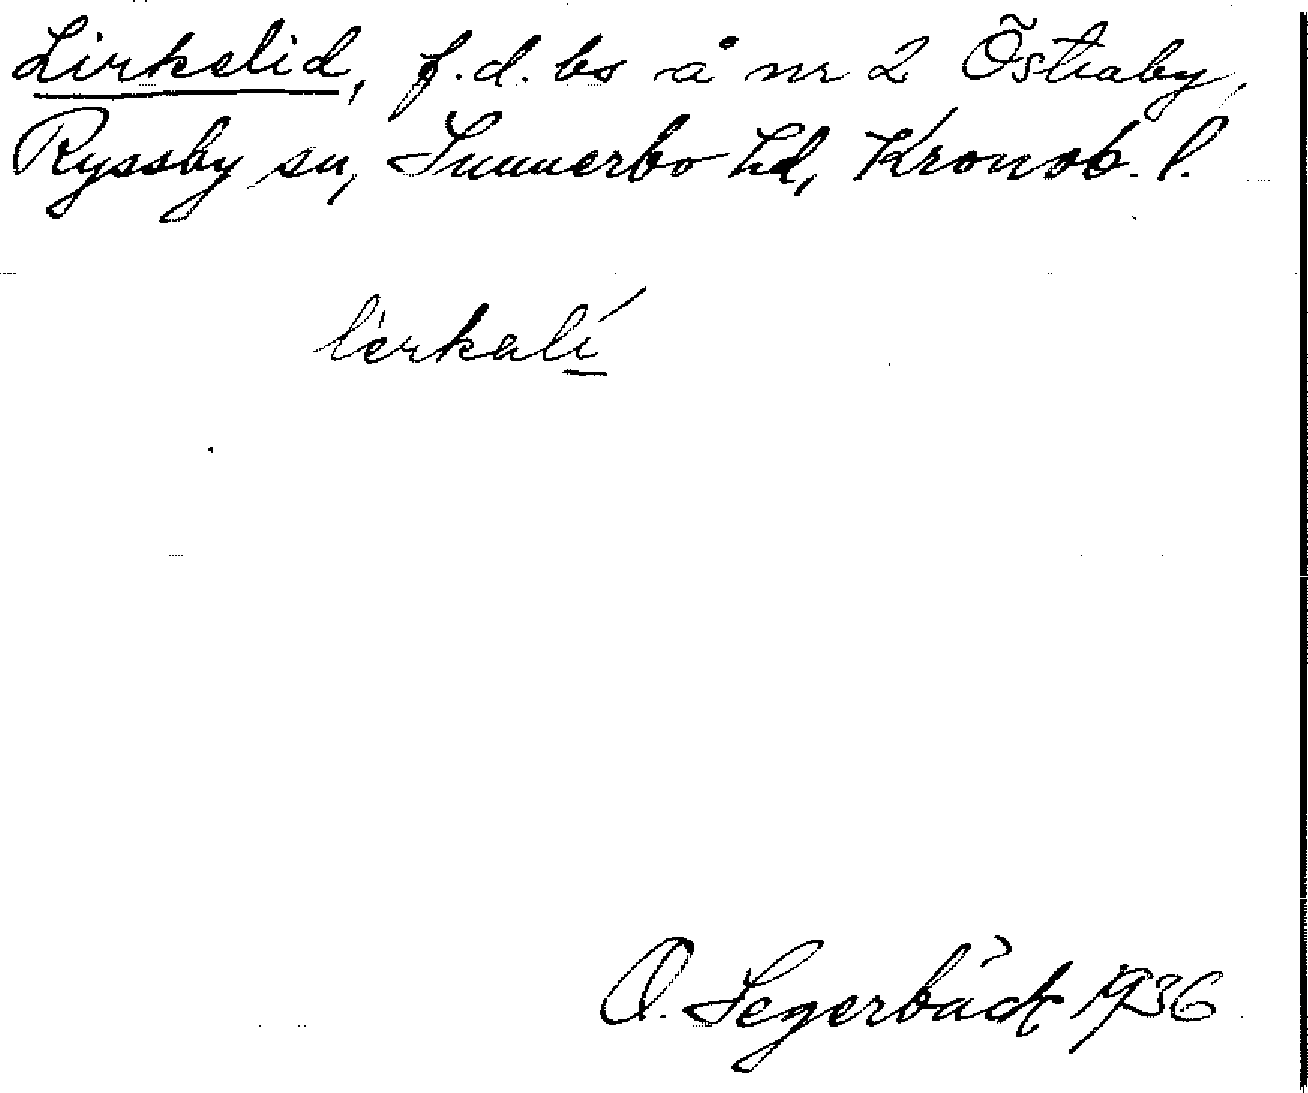 Lirkelid, f.d. bs å nr 2 Östraby,
Ryssby sn, Sunnerbo hd, Kronob. l.
lèrkalí
O. Segerbäck 1936